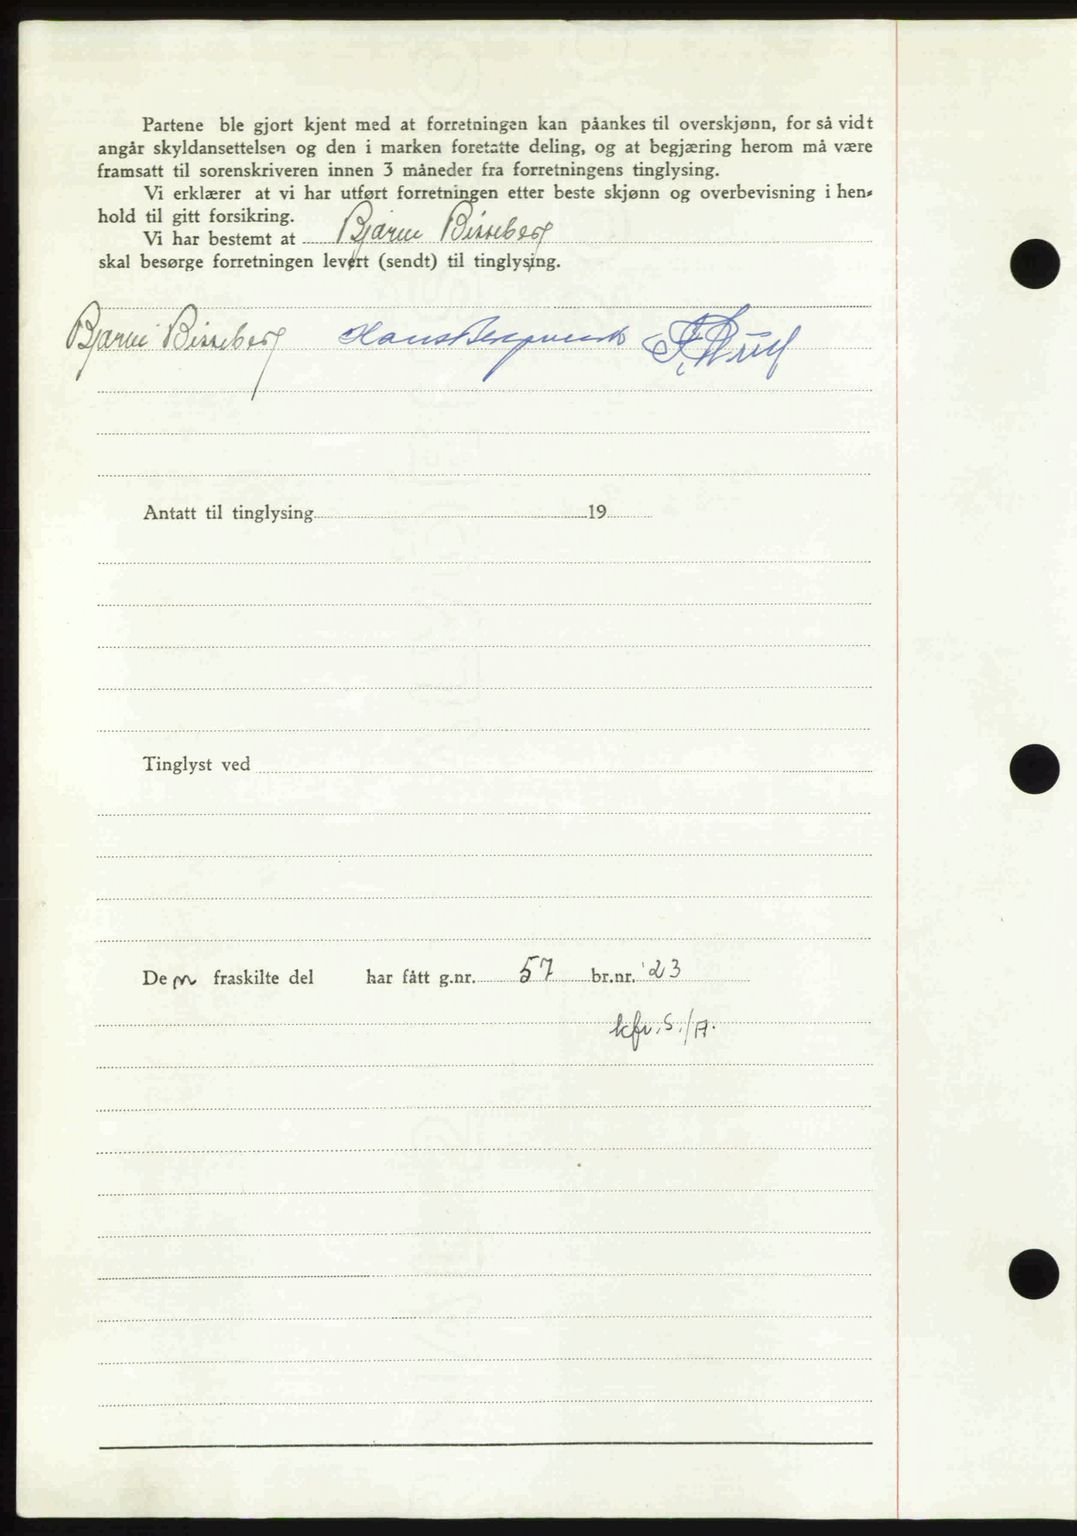 Partene ble gjort kjent med at forretningen kan påankes til overskjønn, for så vidt
angår skyldansettelsen og den i marken foretatte deling, og at begjæring herom må være
framsatt til sorenskriveren innen 3 måneder fra forretningens tinglysing.
Vi erklærer at vi har utført forretningen etter beste skjønn og overbevisning i hen-
hold til gitt forsikring.
Vi har bestemt at Bjarne Bisseberg
skal besørge forretningen levert (sendt) til tinglysing.
Bjarne Bisseberg Hans
Antatt til tinglysing 19
Tinglyst ved
Den fraskilte del har fått g.nr. 57 br.nr. 23
kfr. S./A.